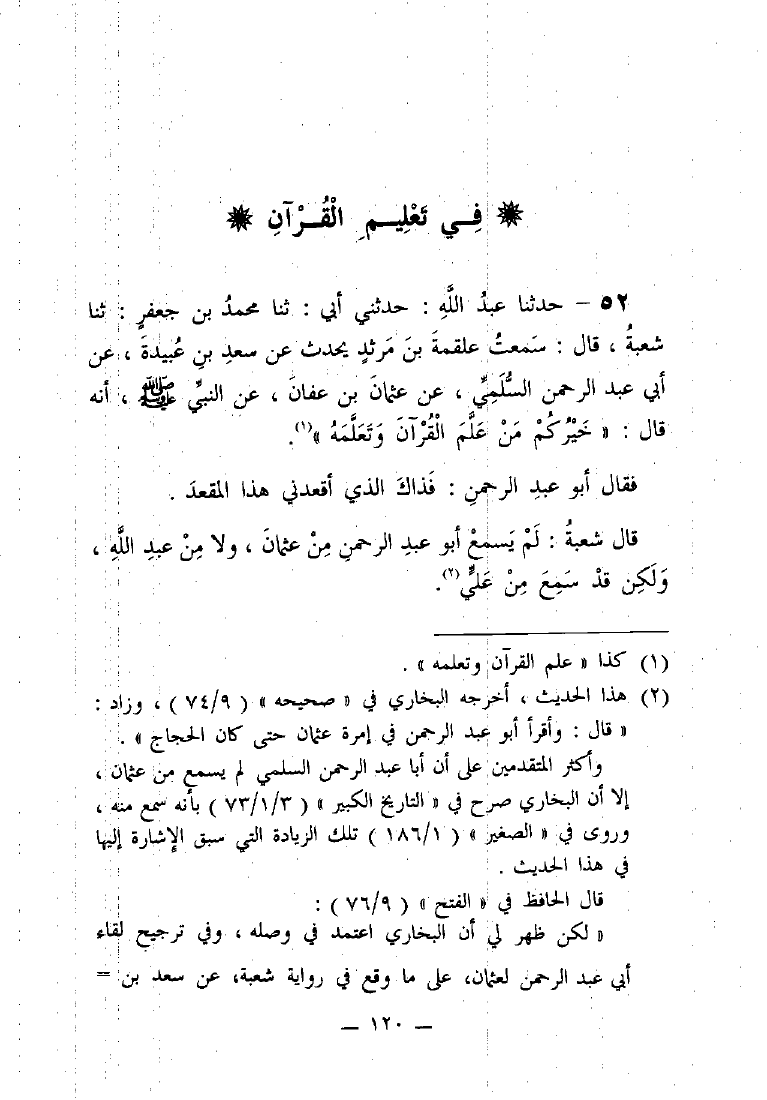 ❋ فِــي تَعْلِيــمِ الْقُــرْآنِ ❋
٥٢ – حدثنا عبدُ اللَّهِ : حدثني أبي : ثنا محمدُ بن جعفرٍ : ثنا
شعبةُ ، قال : سَمعتُ علقمةَ بنَ مَرثدٍ يحدث عن سعدِ بنِ عُبيدةَ ، عن
أبي عبد الرحمن السُّلَمِيِّ ، عن عثمانَ بن عفانَ ، عن النبيِّ ﷺ ، أنه
قال : « خَيْرُكُمْ مَنْ عَلَّمَ الْقُرْآنَ وَتَعَلَّمَهُ »(١).
فقال أبو عبدِ الرحمنِ : فَذاكَ الذي أقعدني هذا المقعدَ .
قال شعبةُ : لَمْ يَسمعْ أبو عبدِ الرحمنِ مِنْ عثمانَ ، ولا مِنْ عبدِ اللَّهِ ،
وَلَكِن قدْ سَمِعَ مِنْ عَلِيٍّ(٢).
(١) كذا « علم القرآن وتعلمه » .
(٢) هذا الحديث ، أخرجه البخاري في « صحيحه » ( ٧٤/٩ ) ، وزاد :
« قال : وأقرأ أبو عبد الرحمن في إمرة عثمان حتى كان الحجاج » .
وأكثر المتقدمين على أن أبا عبد الرحمن السلمي لم يسمع من عثمان ،
إلا أن البخاري صرح في « التاريخ الكبير » ( ٧٣/١/٣ ) بأنه سمع منه ،
وروى في « الصغير » ( ١٨٦/١ ) تلك الزيادة التي سبق الإشارة إليها
في هذا الحديث .
قال الحافظ في « الفتح » ( ٧٦/٩ ) :
« لكن ظهر لي أن البخاري اعتمد في وصله ، وفي ترجيح لقاء
أبي عبد الرحمن لعثمان، على ما وقع في رواية شعبة، عن سعد بن =
— ١٢٠ —